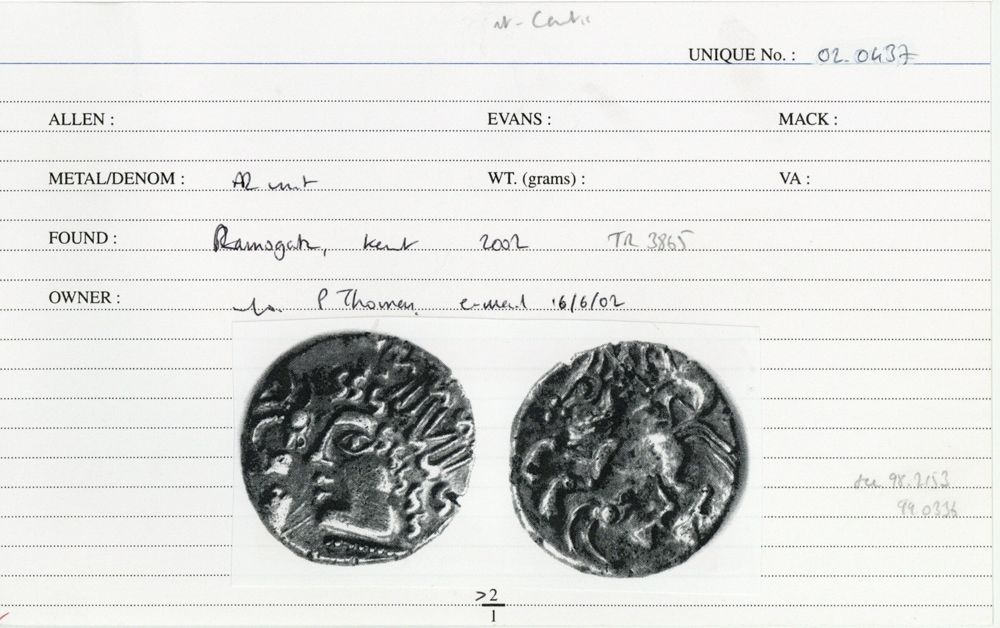 UNIQUE No. : 02.0437
ALLEN : EVANS : MACK :
METAL/DENOM : AR unit WT. (grams) : VA :
FOUND : Ramsgate, Kent 2002 TR 3865
OWNER : P Thomen, e-mail 16/6/02
see 98.2153
99.0336
>2
1